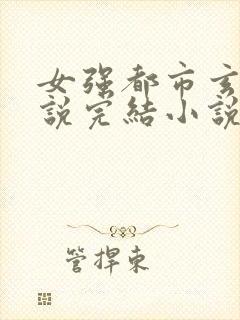 女强都市玄
説完結小說
管捍東